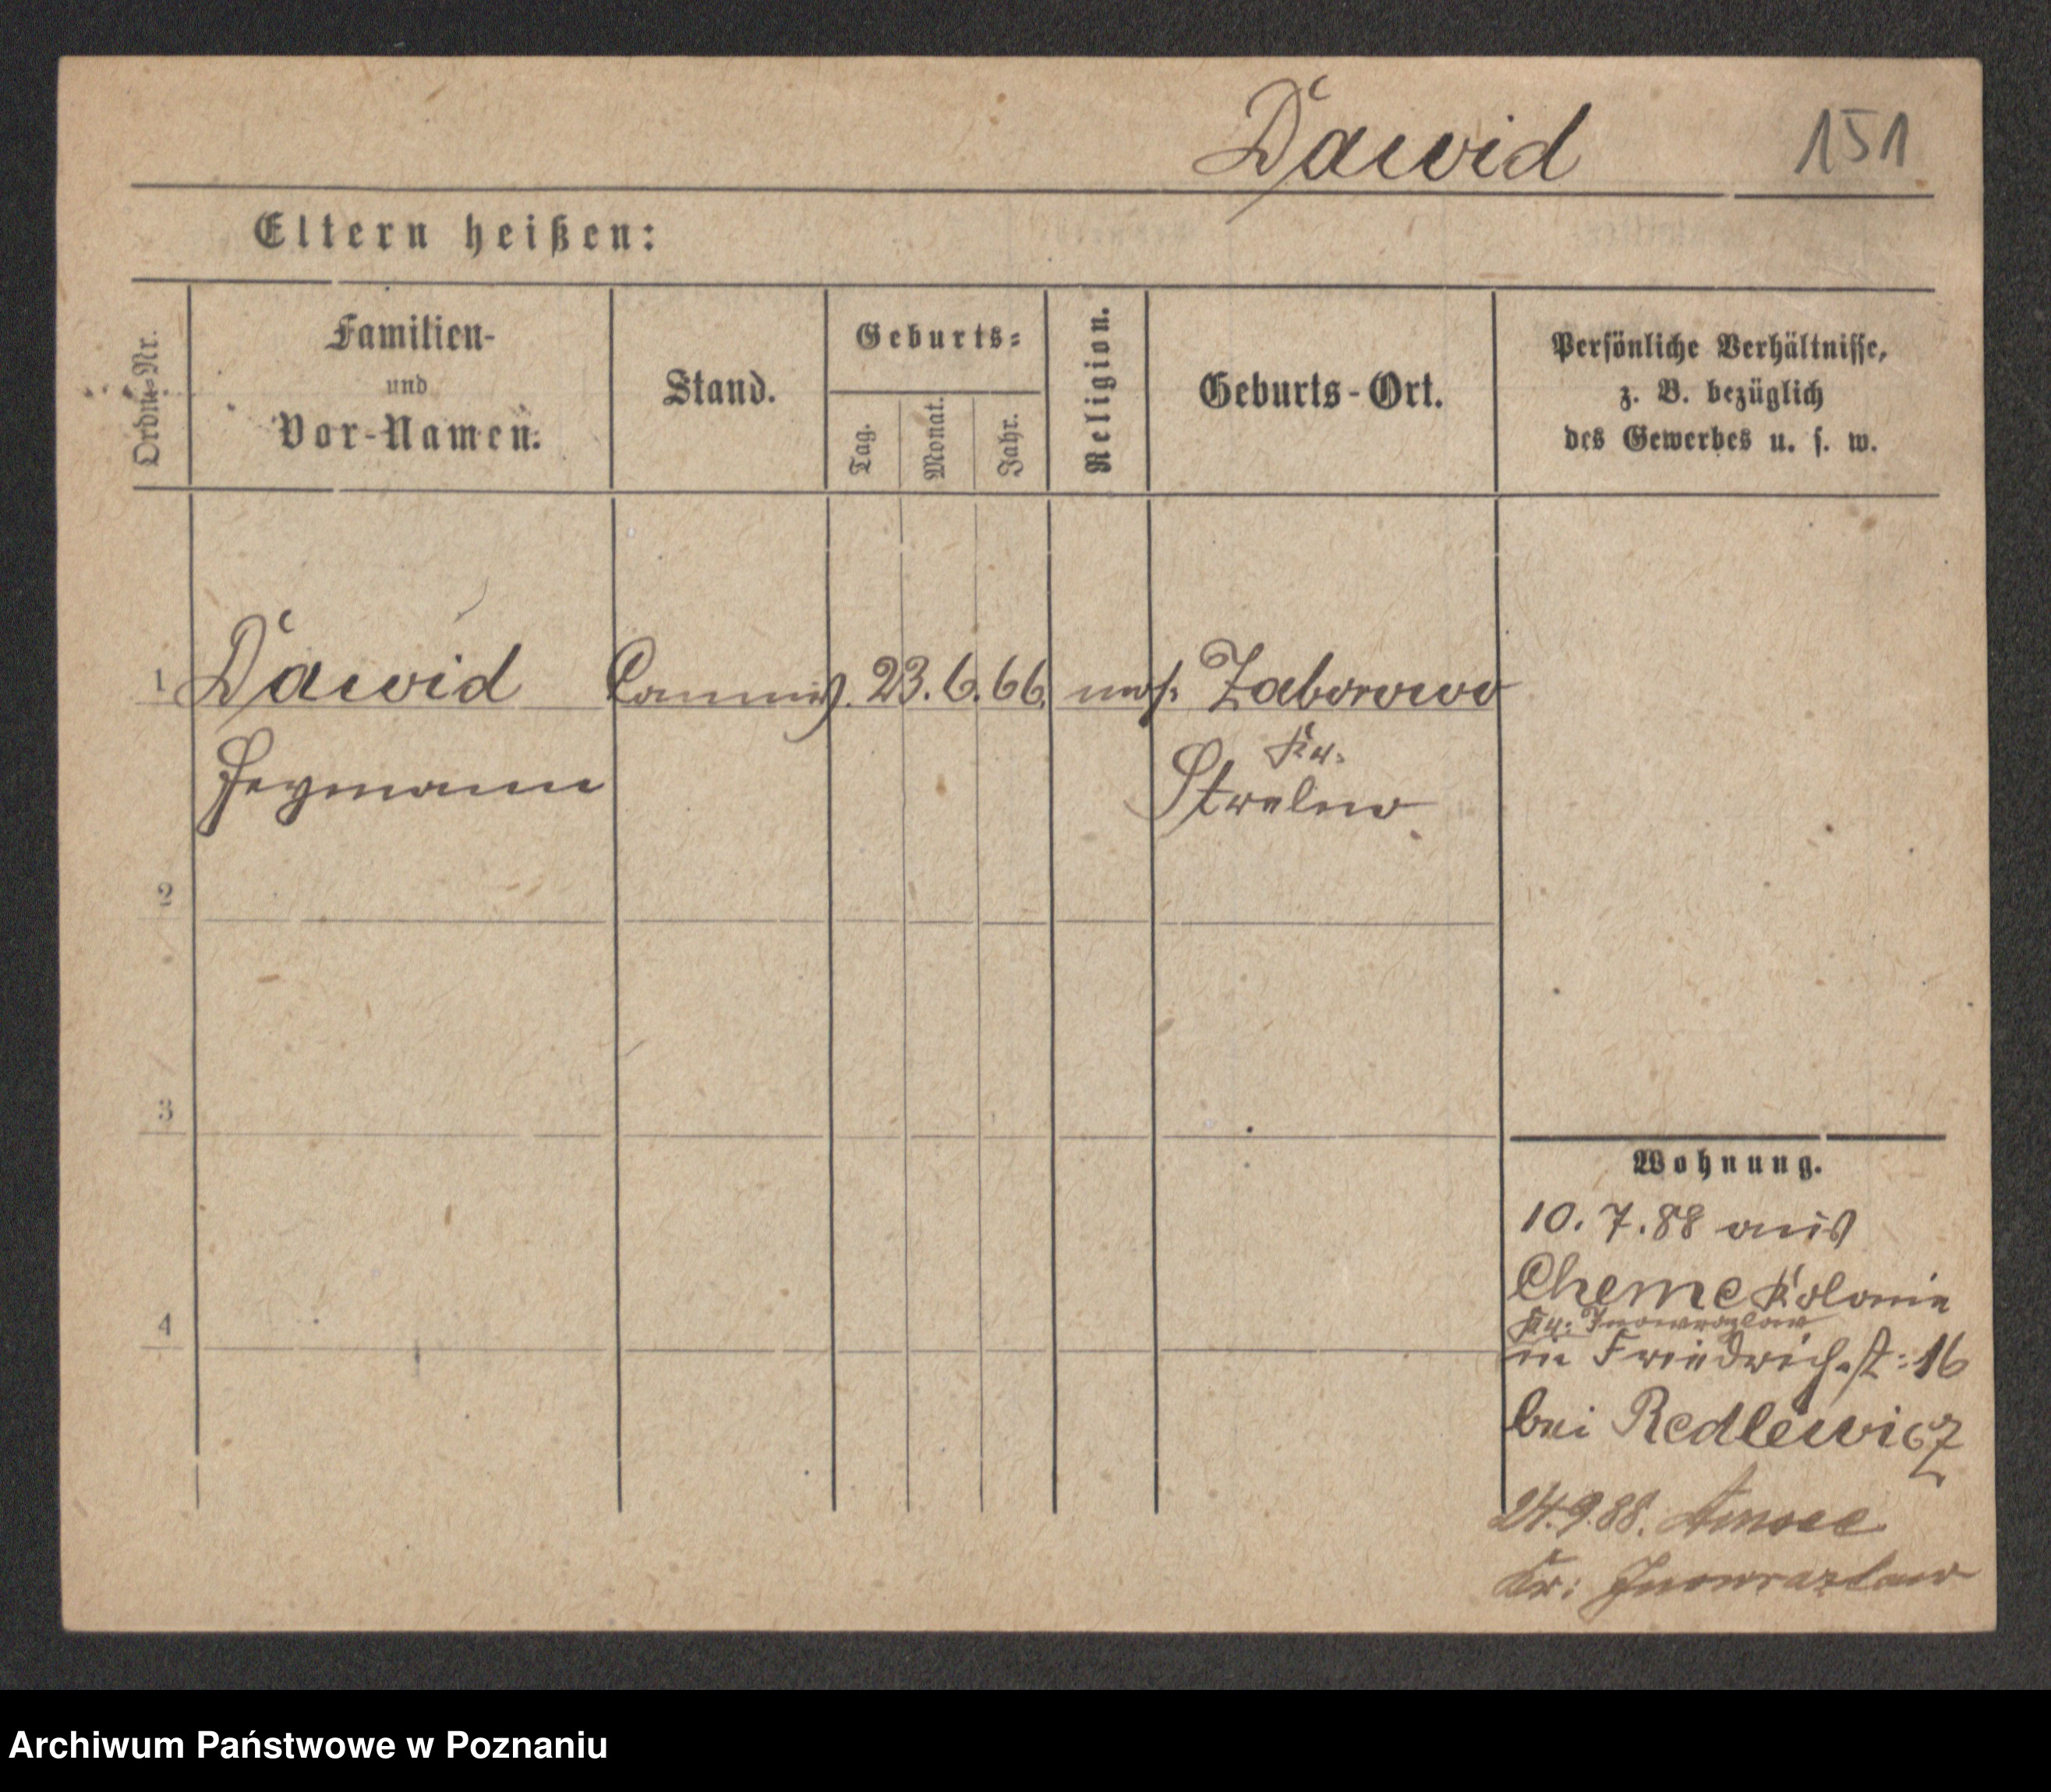 Dawid 151
Eltern heißen:
Ordn.-Nr.
Familien-
und
Vor-Namen.
Stand.
Geburts-
Tag.
Monat.
Jahr.
Religion.
Geburts-Ort.
Persönliche Verhältnisse,
z. B. bezüglich
des Gewerbes u. s. w.
1 Dawid Commis. 23. 6. 66. mos: Zaborowo
Heymann
Kr:
Strelno
2
3
4
Wohnung.
10. 7. 88 aus
Kolonie
Kr: Inowrazlaw
in Friedrich-st: 16
bei Redlewicz
24. 9. 88. Amsee
Kr: Inowrazlaw
Archiwum Państwowe w Poznaniu